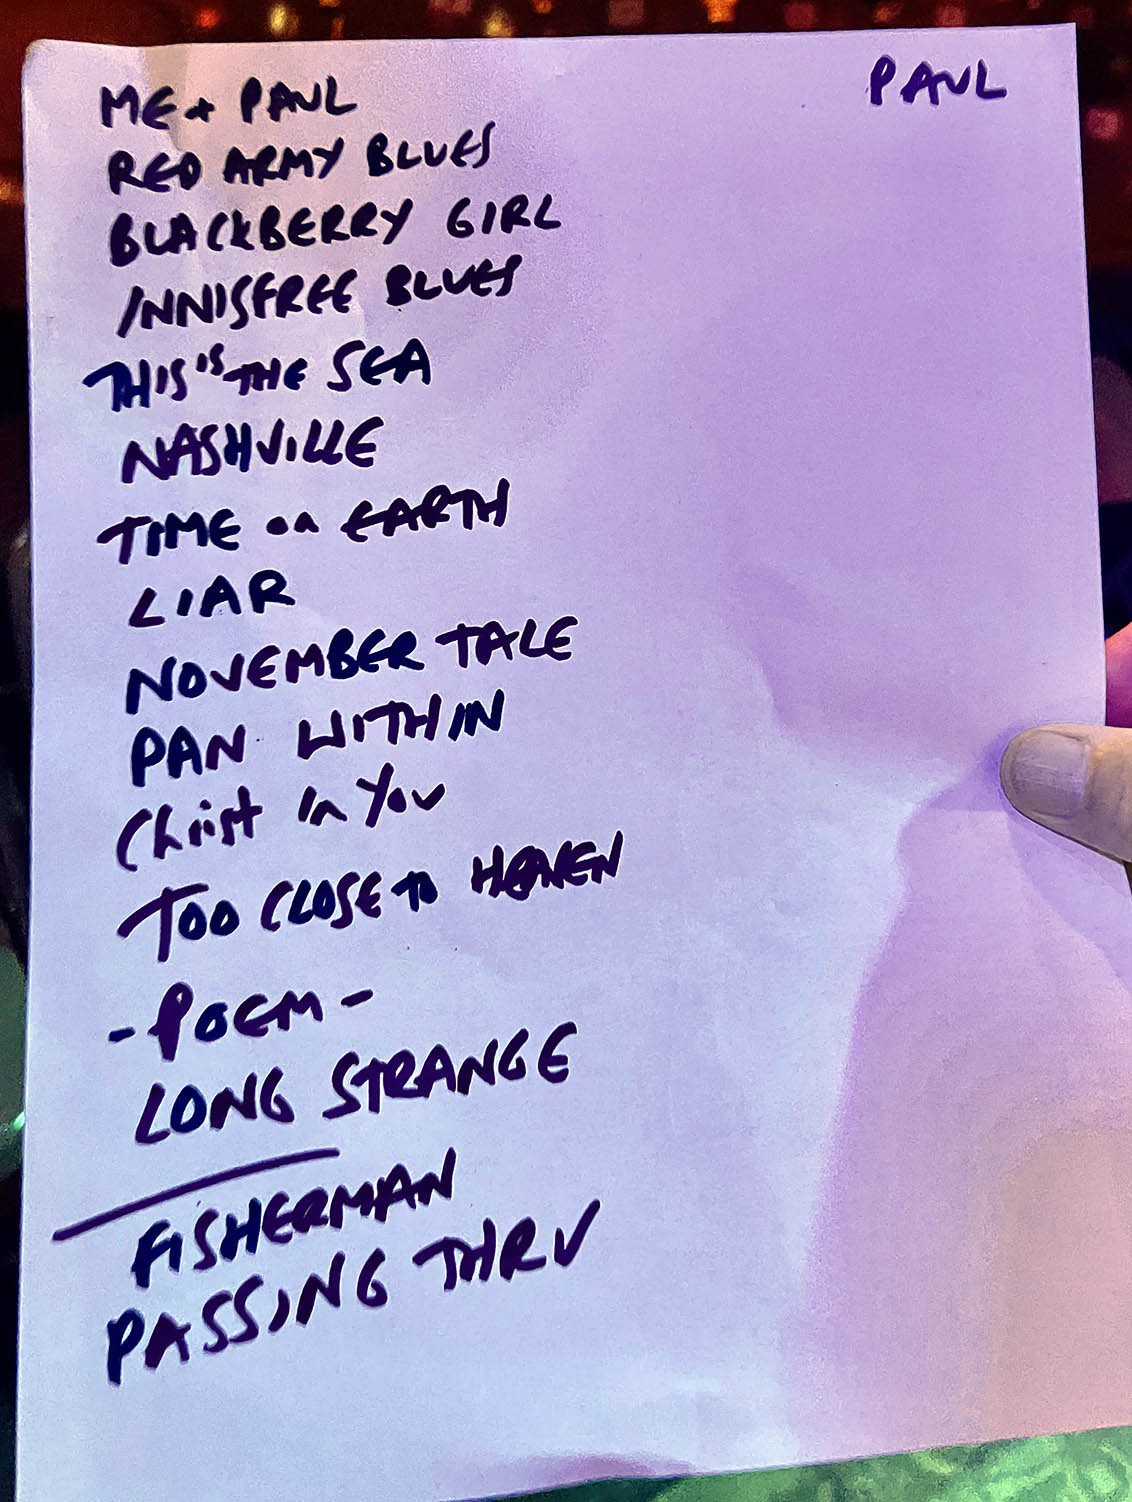 PAUL
ME + PAUL
RED ARMY BLUES
BLACKBERRY GIRL
INNISFREE BLUES
THIS IS THE SEA
NASHVILLE
TIME on EARTH
LIAR
NOVEMBER TALE
PAN WITHIN
Christ in You
TOO CLOSE TO HEAVEN
- POEM -
LONG STRANGE
FISHERMAN
PASSING THRU